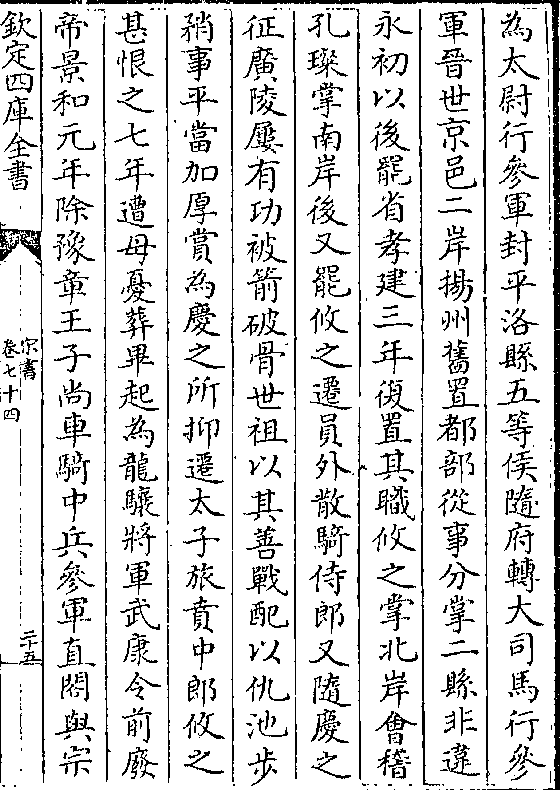 為太尉行參軍封平洛縣五等侯隨府轉大司馬行參
軍晉世京邑二岸揚州舊置都部從事分掌二縣非違
永初以後罷省孝建三年復置其職攸之掌北岸會稽
孔璨掌南岸後又罷攸之遷員外散騎侍郎又隨慶之
征廣陵屢有功被箭破骨世祖以其善戰配以仇池步
矟事平當加厚賞為慶之所抑遷太子旅賁中郎攸之
甚恨之七年遭母憂葬畢起為龍驤將軍武康令前廢
帝景和元年除豫章王子尚車騎中兵參軍直閤與宗
欽定四庫全書
宋書
卷七十四
二十五